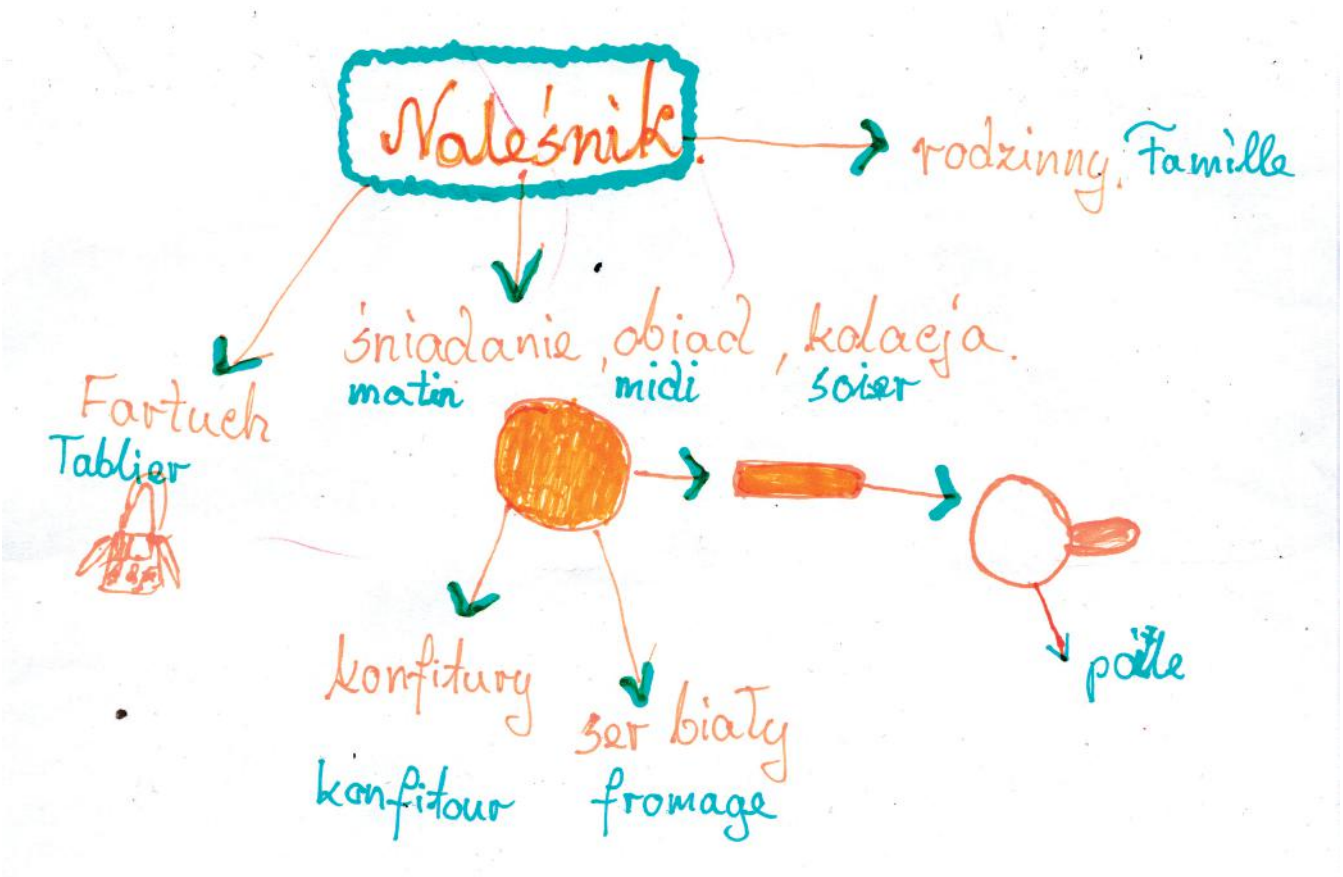 Naleśnik.
rodzinny, Famille
śniadanie, obiad, kolacja.
matin midi soier
Fartuch
Tablier
konfitury
konfitour
ser biały
fromage
pôitle